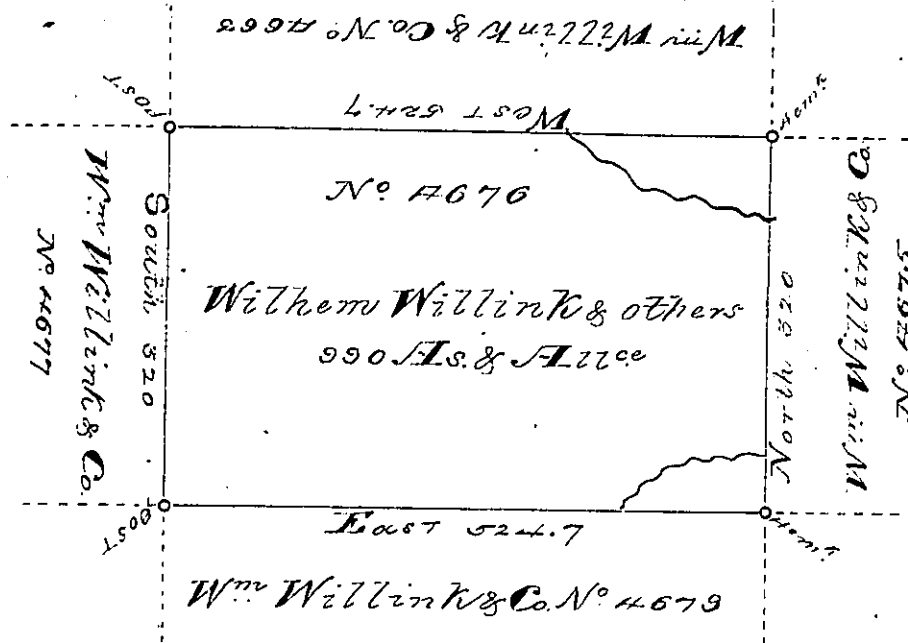 Wm Willink & Co. No
Post
West 524.7
Hemk
No 4676
South 320
Wm Willink & Co.
No 4677
Wilhem Willink & others
990 As. & Allce
North 320
Wm Willink & Co
No 4675
Post
East 524.7
Wm Willink & Co. No 4679